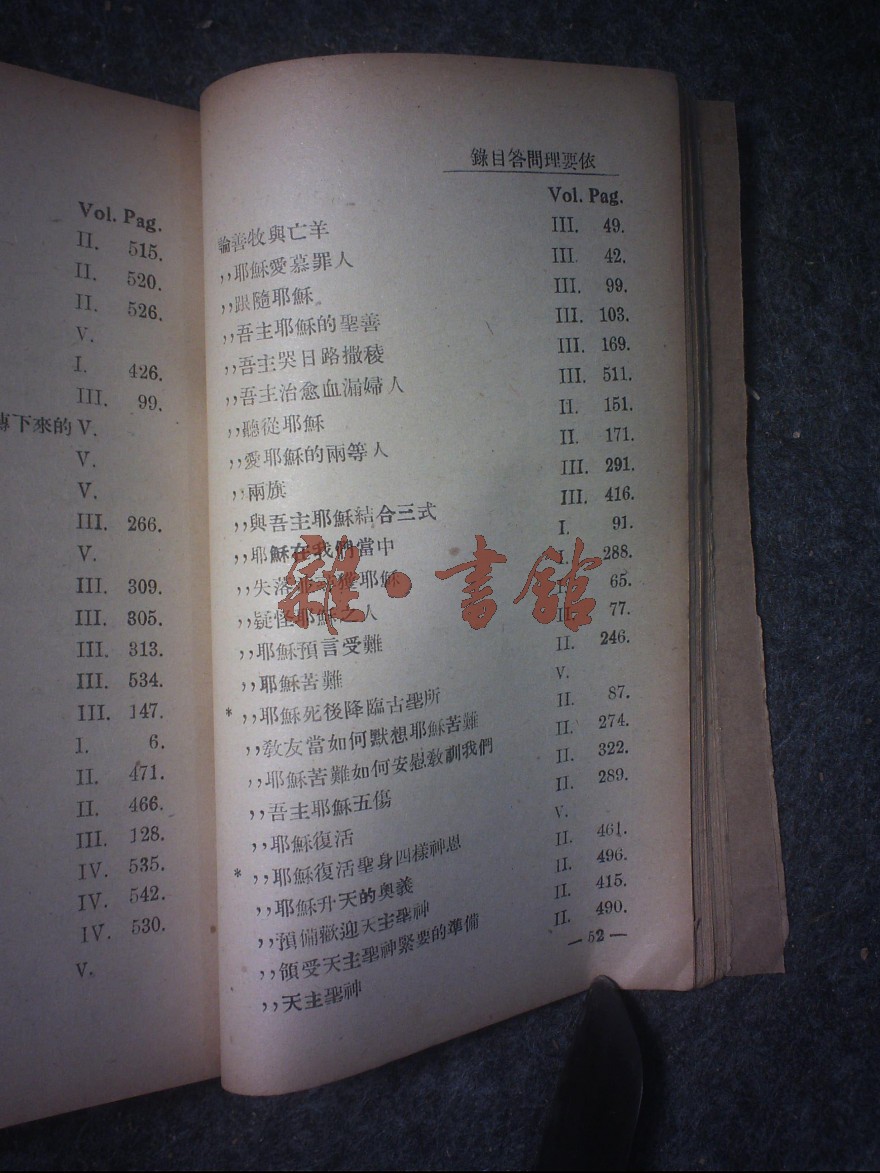 Vol. Pag.
II. 515.
II. 520.
II. 526.
V.
I. 426.
III. 99.
傳下來的 V.
V.
V.
III. 266.
V.
III. 309.
III. 305.
III. 313.
III. 534.
III. 147.
I. 6.
II. 471.
II. 466.
III. 128.
IV. 535.
IV. 542.
IV. 530.
V.
錄目答問理要依
Vol. Pag.
論善牧與亡羊 III. 49.
,,耶穌愛慕罪人 III. 42.
,,跟隨耶穌 III. 99.
,,吾主耶穌的聖善 III. 103.
,,吾主哭日路撒稜 III. 169.
,,吾主治愈血漏婦人 III. 511.
,,聽從耶穌 II. 151.
,,愛耶穌的兩等人 II. 171.
,,兩旗 III. 291.
,,與吾主耶穌結合三式 III. 416.
,,耶穌在我們當中 I. 91.
,,失落耶穌 獲耶穌 I. 288.
,,疑怪耶穌之人 65.
,,耶穌預言受難 II. 77.
,,耶穌苦難 II. 246.
* ,,耶穌死後降臨古聖所 V.
,,教友當如何默想耶穌苦難 II. 87.
,,耶穌苦難如何安慰教訓我們 II. 274.
,,吾主耶穌五傷 II. 322.
,,耶穌復活 II. 289.
* ,,耶穌復活聖身四樣神恩 V.
,,耶穌升天的奧義 II. 461.
,,預備歡迎天主聖神 II. 496.
,,領受天主聖神緊要的準備 II. 415.
,,天主聖神 II. 490.
— 52 —
雜·書館